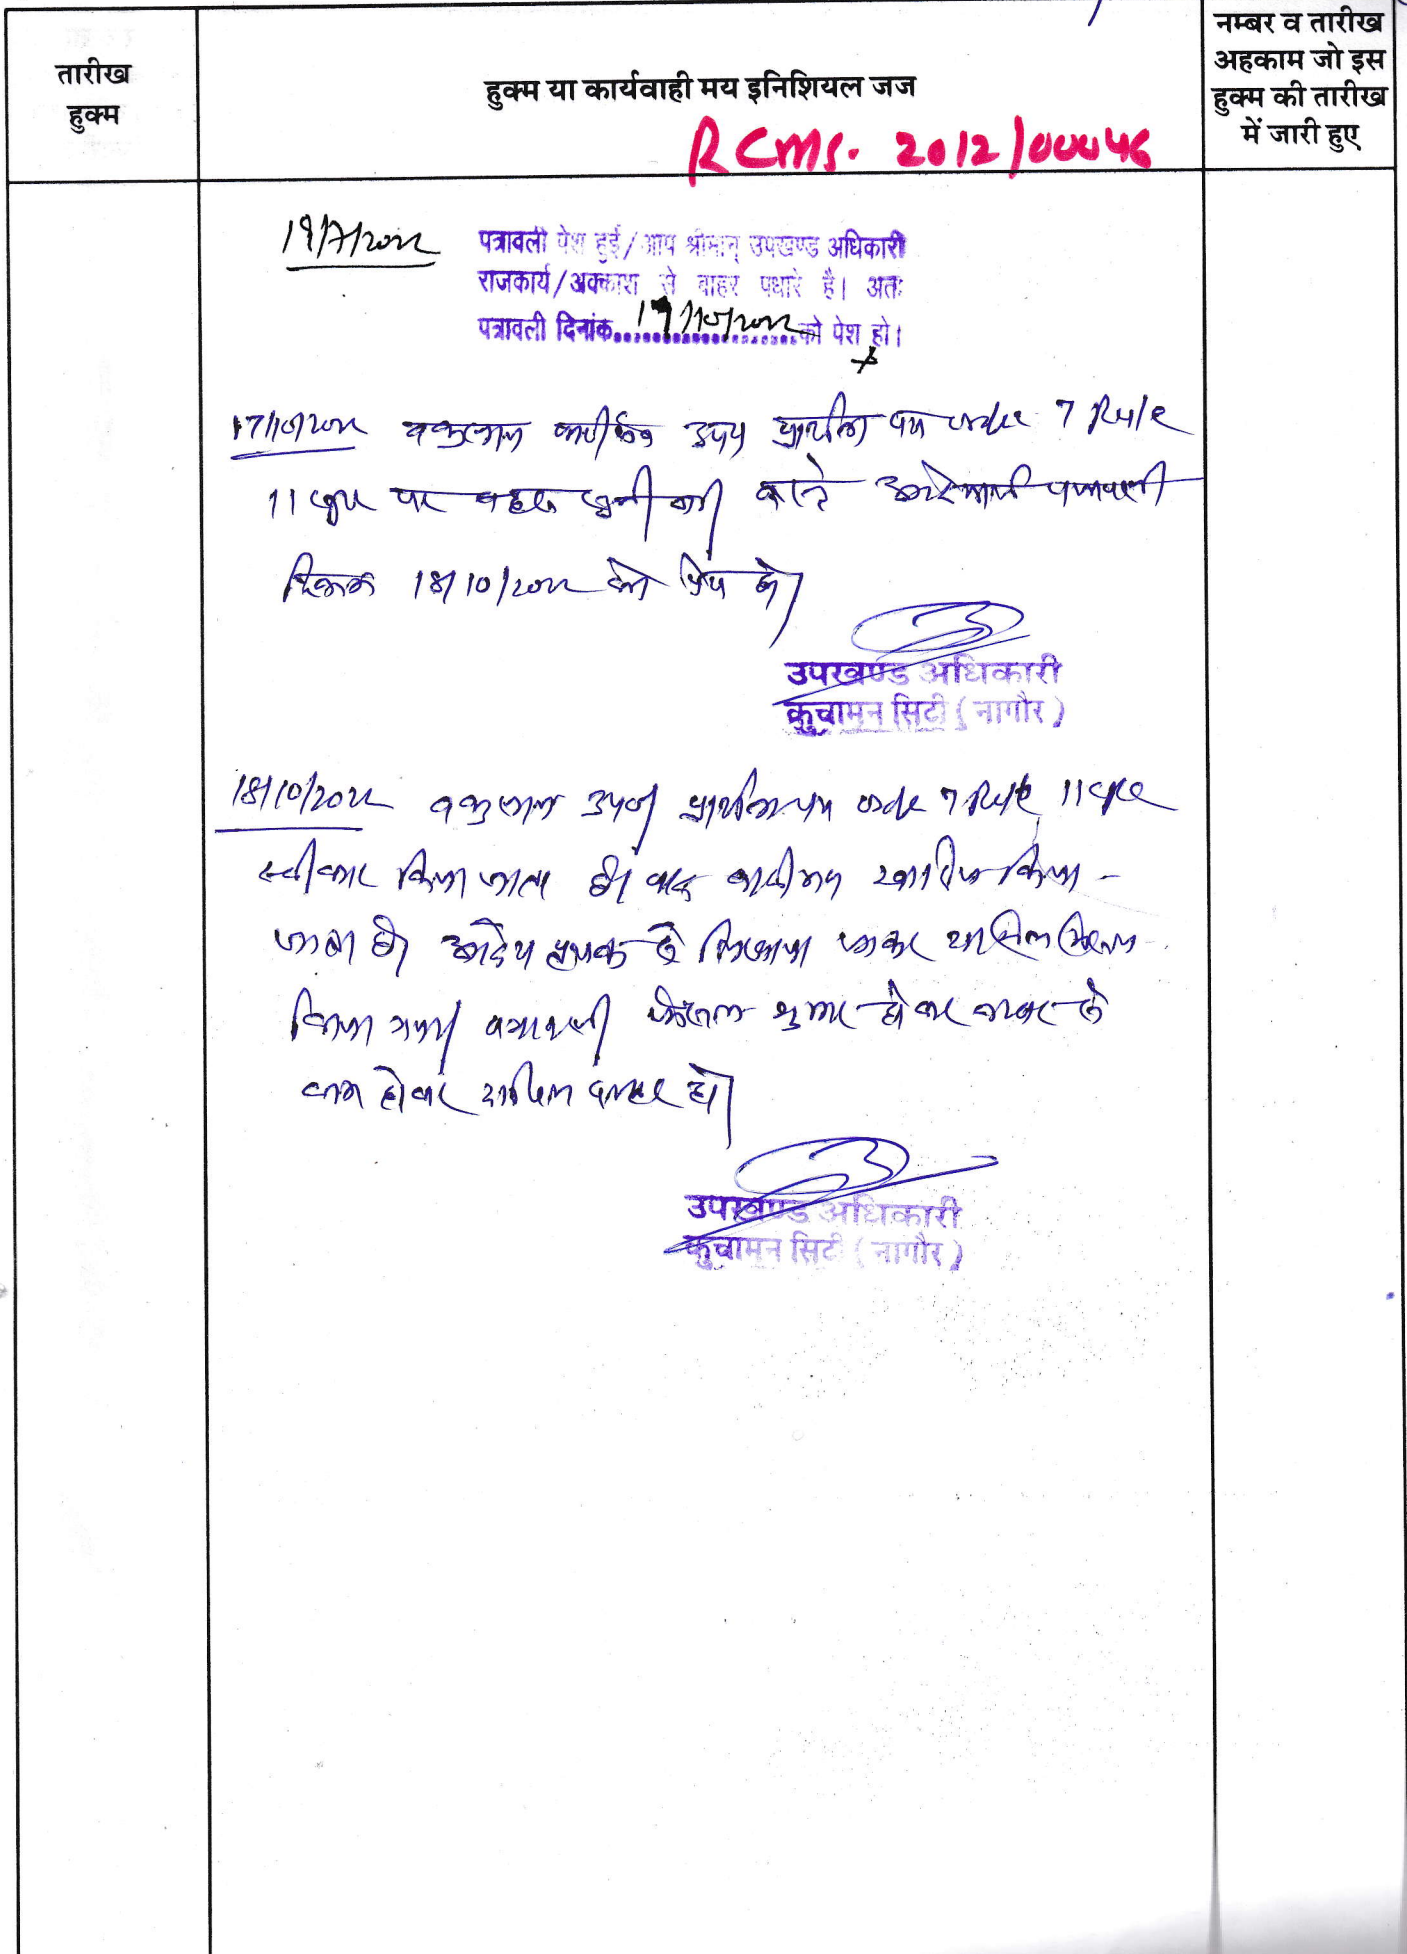 तारीख
हुक्म
हुक्म या कार्यवाही मय इनिशियल जज
नम्बर व तारीख
अहकाम जो इस
हुक्म की तारीख
में जारी हुए
RCMS. 2012/00046
19/7/2022
पत्रावली पेश हुई/आप श्रीमान् उपखण्ड अधिकारी
राजकार्य/अवकाश से बाहर पधारे है। अतः
पत्रावली दिनांक 17/10/2022 को पेश हो।
17/10/2022 वकुलान उपप प्रार्थना पत्र order 7 Rule
11 पर बहस सुनी गयी वास्ते पत्रावली
दिनांक 18/10/2022 को पेश हो।
उपखण्ड अधिकारी
कुचामन सिटी (नागौर)
18/10/2022 वकुलान उप० प्रार्थना पत्र order 7 Rule 11 CPC
स्वीकार किया जाता है। वाद वादीगण खारिज किया
जाता है। आदेश पृथक से लिखाया जाकर शामिल मिसल
किया गया। पत्रावली फैसल शुमार होकर नम्बर से
कम होकर दाखिल दफ्तर हो।
उपखण्ड अधिकारी
कुचामन सिटी (नागौर)